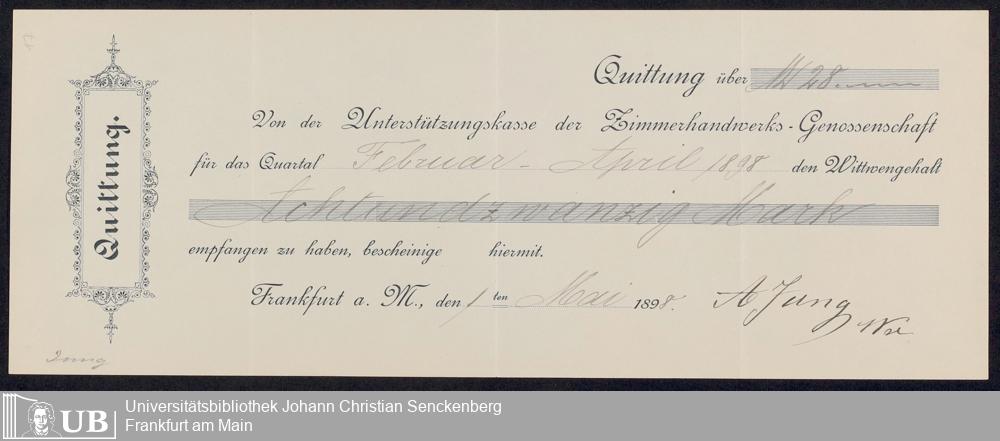 Quittung.
Quittung über M 28.
Von der Unterstützungskasse der Zimmerhandwerks-Genossenschaft
für das Quartal Februar - April 1898 den Wittwengehalt
Achtundzwanzig Mark
empfangen zu haben, bescheinige hiermit.
Frankfurt a. M., den 1 ten Mai 1898. A Jung
Wwe
Jung
UB
Universitätsbibliothek Johann Christian Senckenberg
Frankfurt am Main